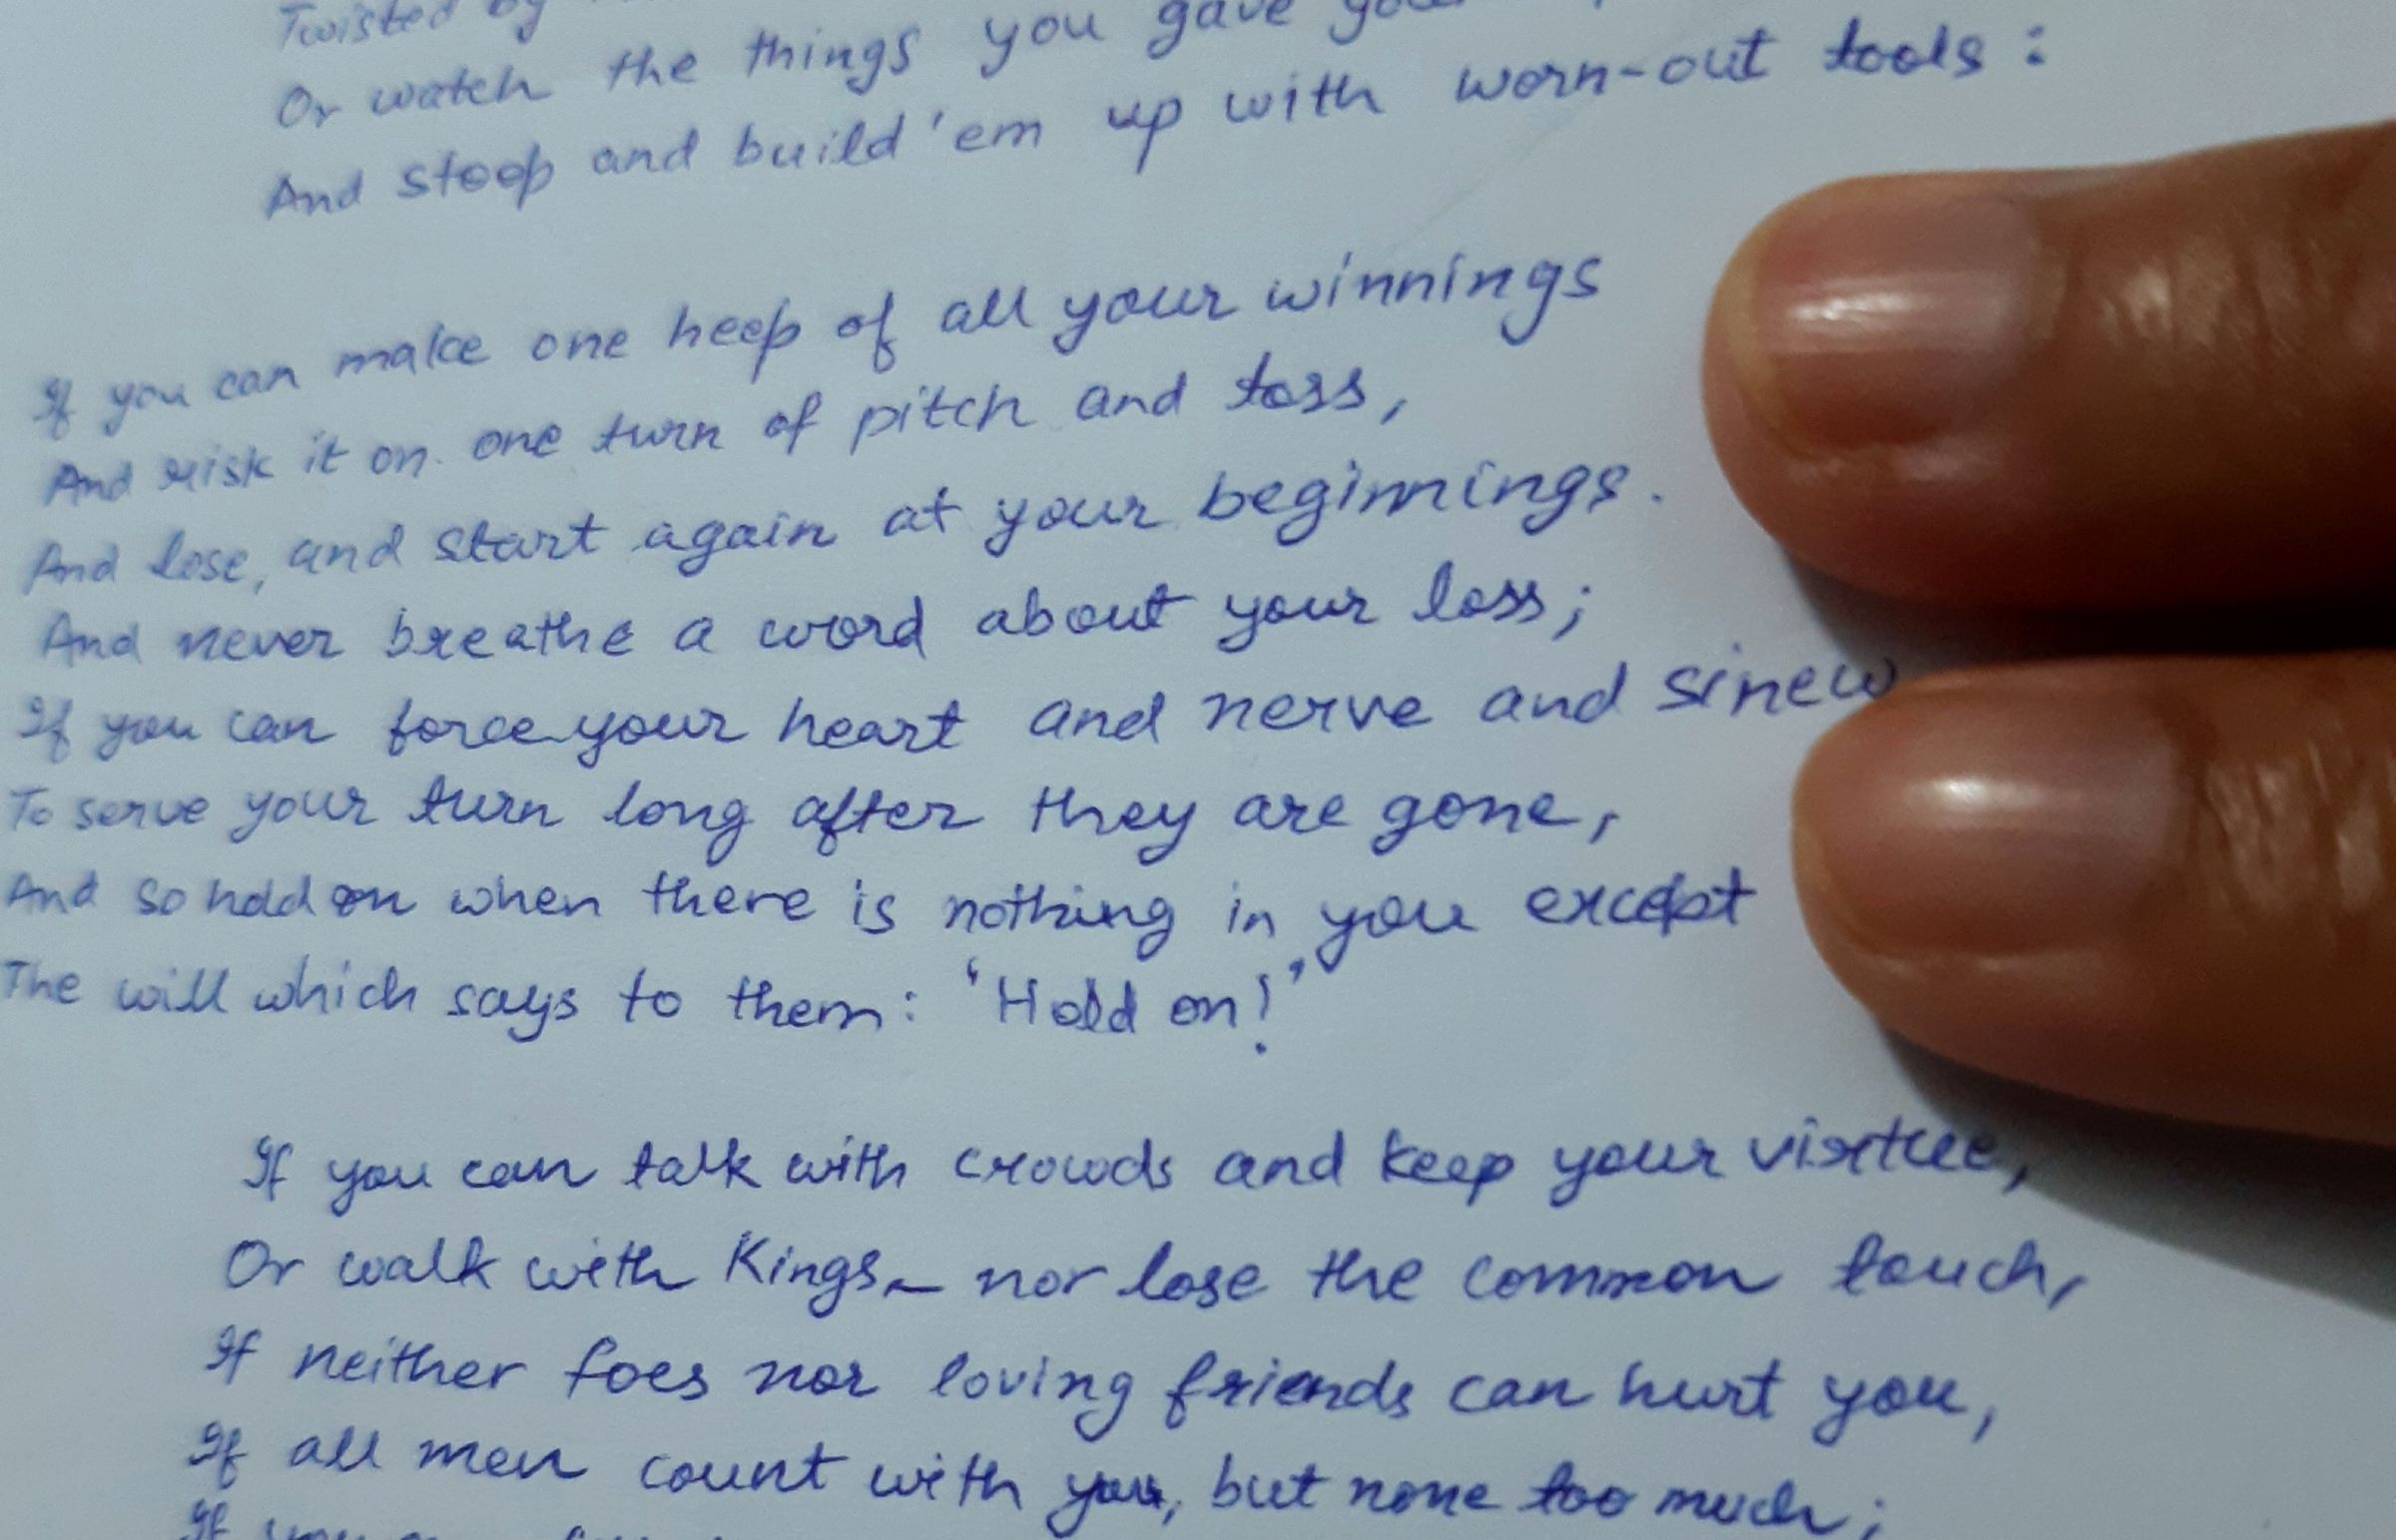 Twisted by
Or watch the things you gave your
And stoop and build 'em up with worn-out tools:
If you can make one heep of all your winnings
And risk it on one turn of pitch and toss,
And lose, and start again at your beginnings.
And never breathe a word about your loss;
If you can force your heart and nerve and sinew
To serve your turn long after they are gone,
And so hold on when there is nothing in you except
The will which says to them: 'Hold on!'
If you can talk with crowds and keep your virtue,
Or walk with Kings - nor lose the common touch,
If neither foes nor loving friends can hurt you,
If all men count with you, but none too much;
If you